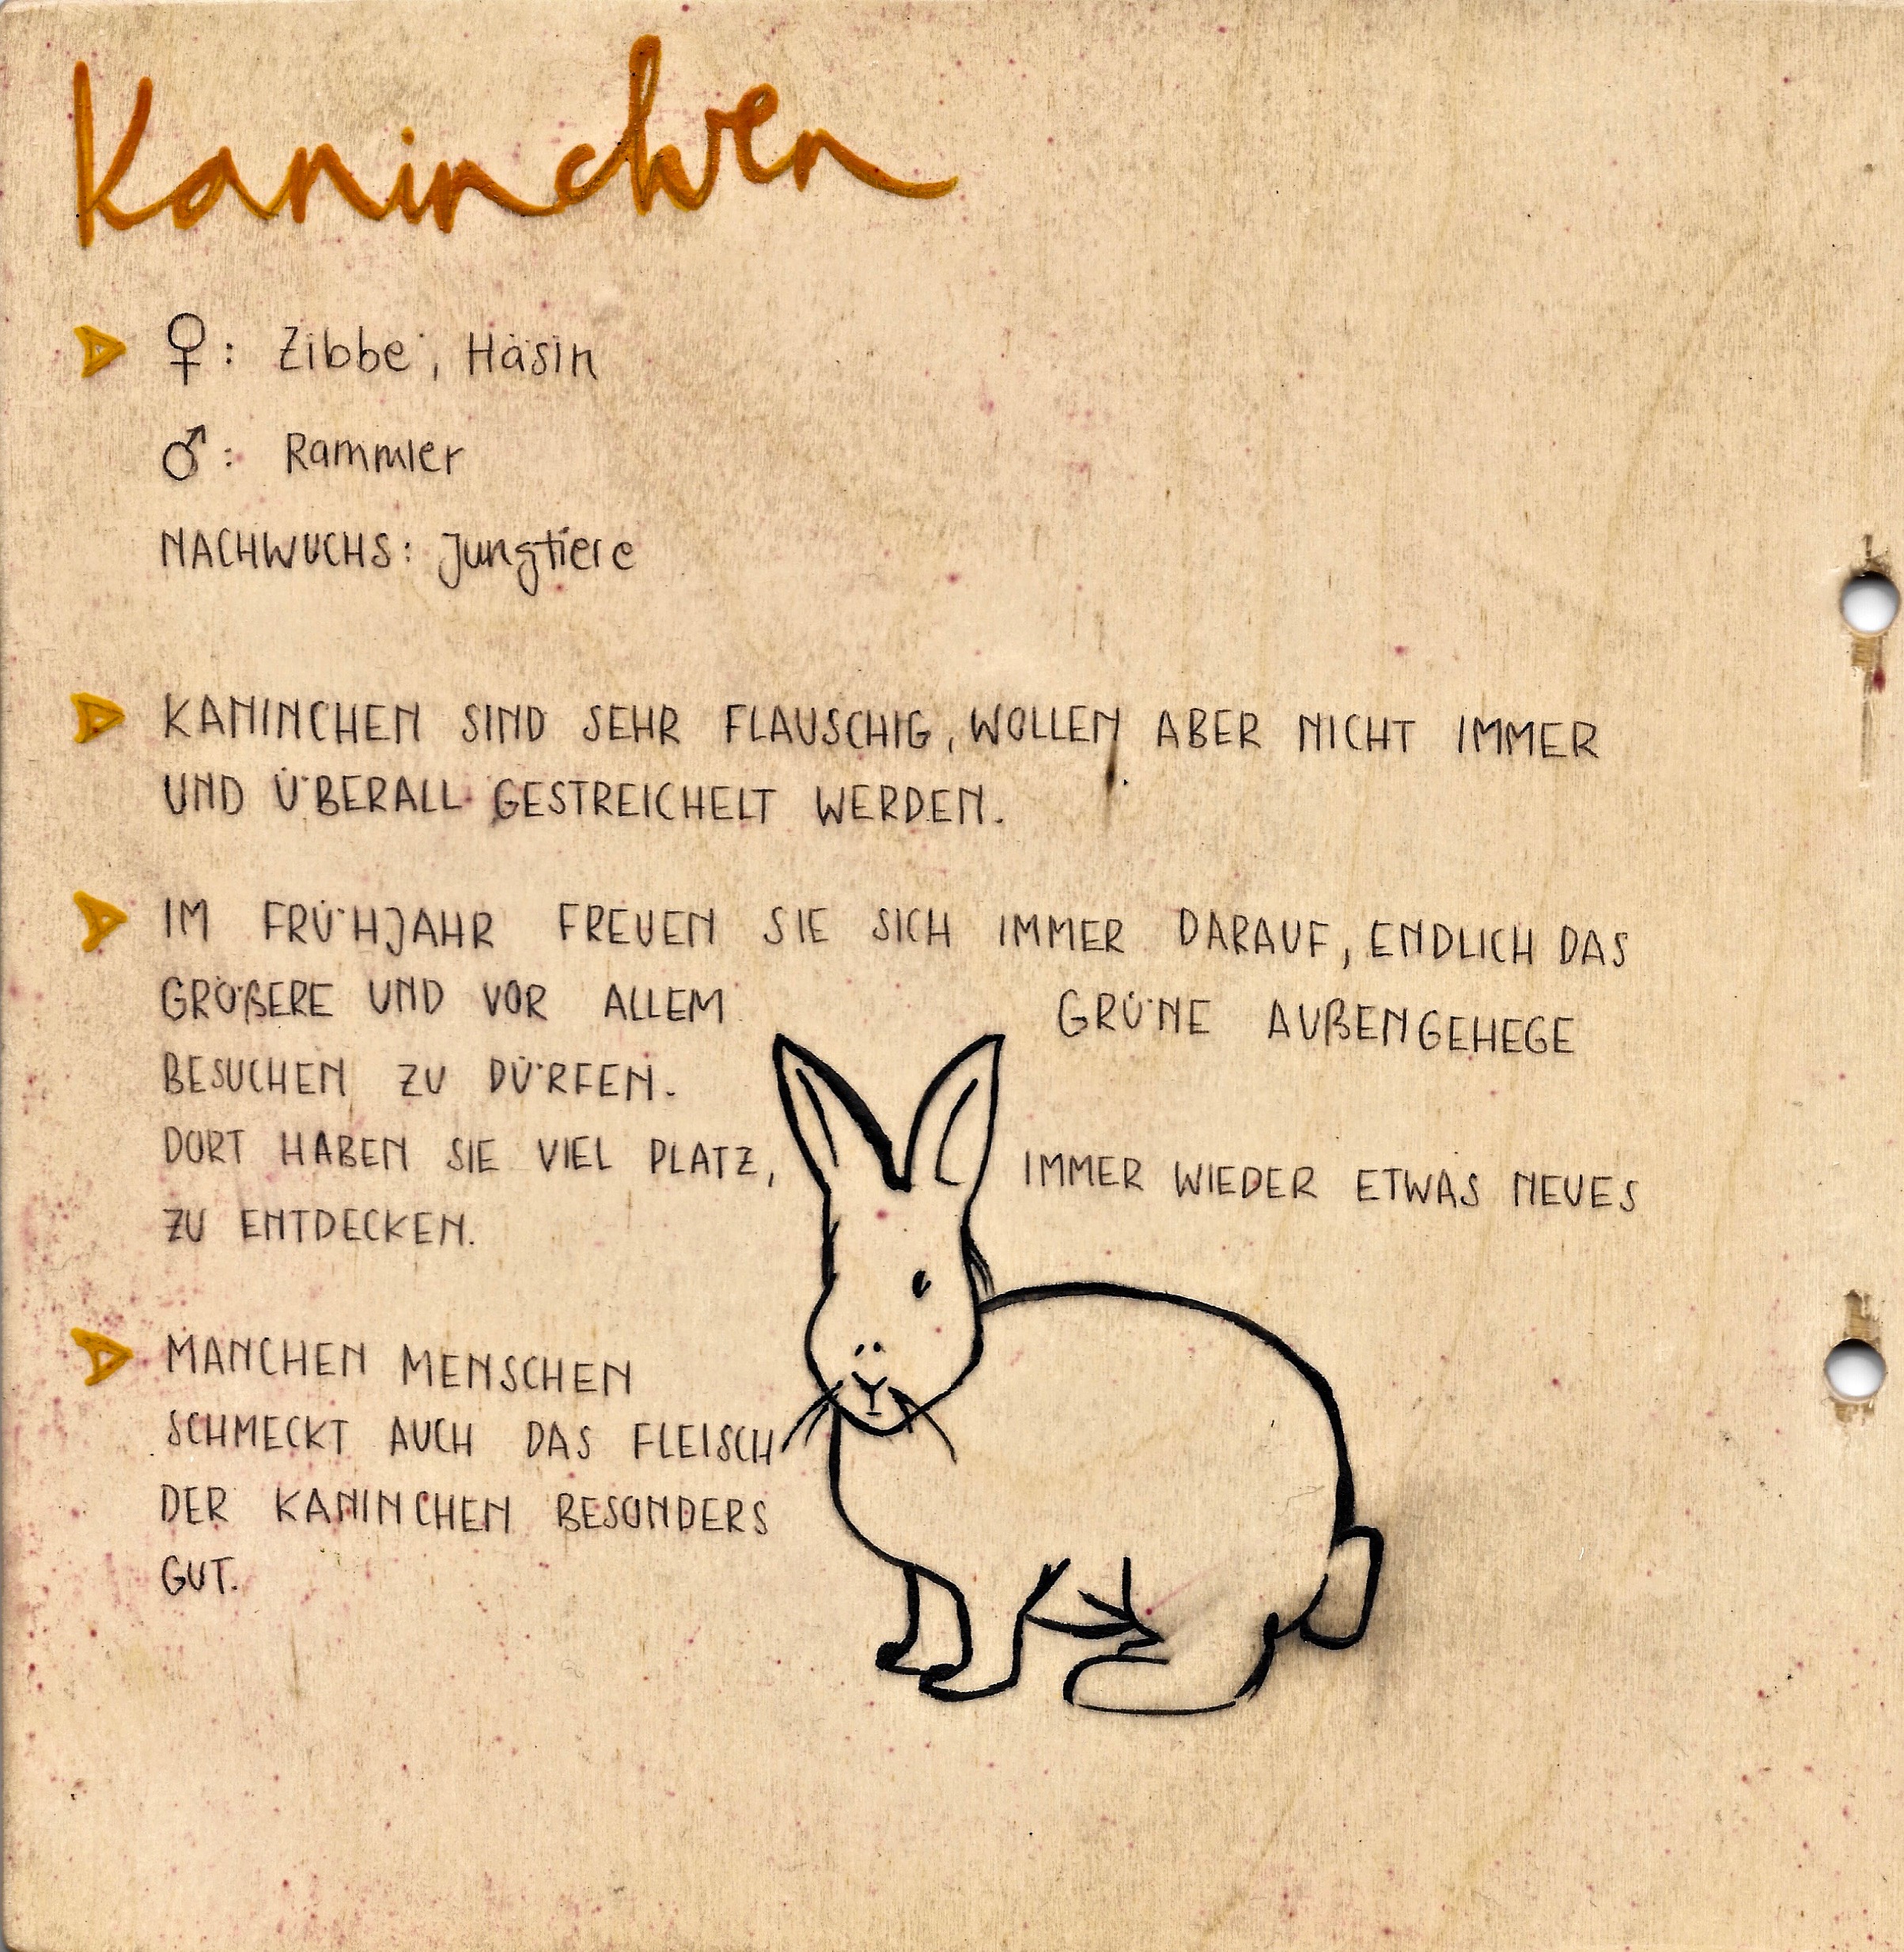 Kaninchen
♀: Zibbe, Häsin
♂: Rammler
NACHWUCHS: Jungtiere
KANINCHEN SIND SEHR FLAUSCHIG, WOLLEN ABER NICHT IMMER
UND ÜBERALL GESTREICHELT WERDEN.
IM FRÜHJAHR FREUEN SIE SICH IMMER DARAUF, ENDLICH DAS
GRÖßERE UND VOR ALLEM GRÜNE AUßENGEHEGE
BESUCHEN ZU DÜRFEN.
DORT HABEN SIE VIEL PLATZ, IMMER WIEDER ETWAS NEUES
ZU ENTDECKEN.
MANCHEN MENSCHEN
SCHMECKT AUCH DAS FLEISCH
DER KANINCHEN BESONDERS
GUT.